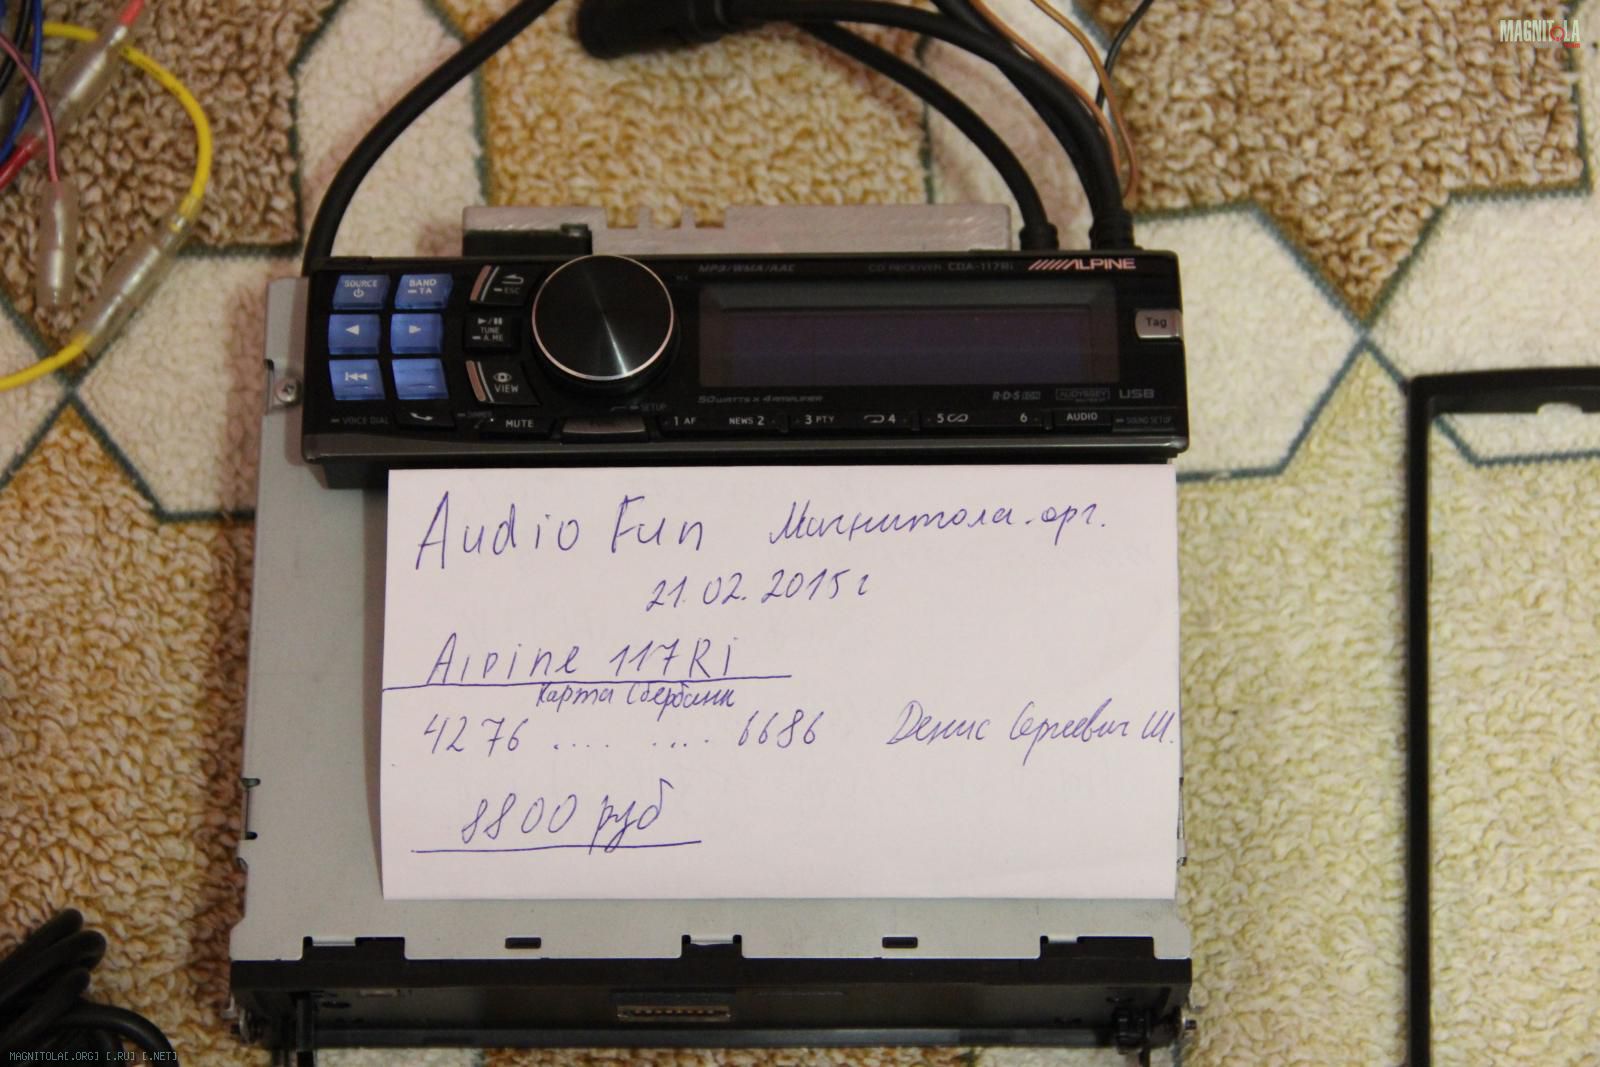 MAGNITOLA
MP3/WMA/AAC CD RECEIVER CDA-117Ri ALPINE
SOURCE BAND TA ESC
TUNE A.ME Tag
VIEW
50WATTS X 4 AMPLIFIER R·D·S AUDYSSEY USB
VOICE DIAL DIMMER MUTE SETUP 1 AF NEWS 2 3 PTY 4 5 6 AUDIO SOUND SETUP
Audio Fun Магнитола.орг.
21.02.2015г
Alpine 117Ri
Карта Сбербанк
4276 .... .... 6686 Денис Сергеевич Ш.
8800 руб
MAGNITOLA[.ORG] [.RU] [.NET]